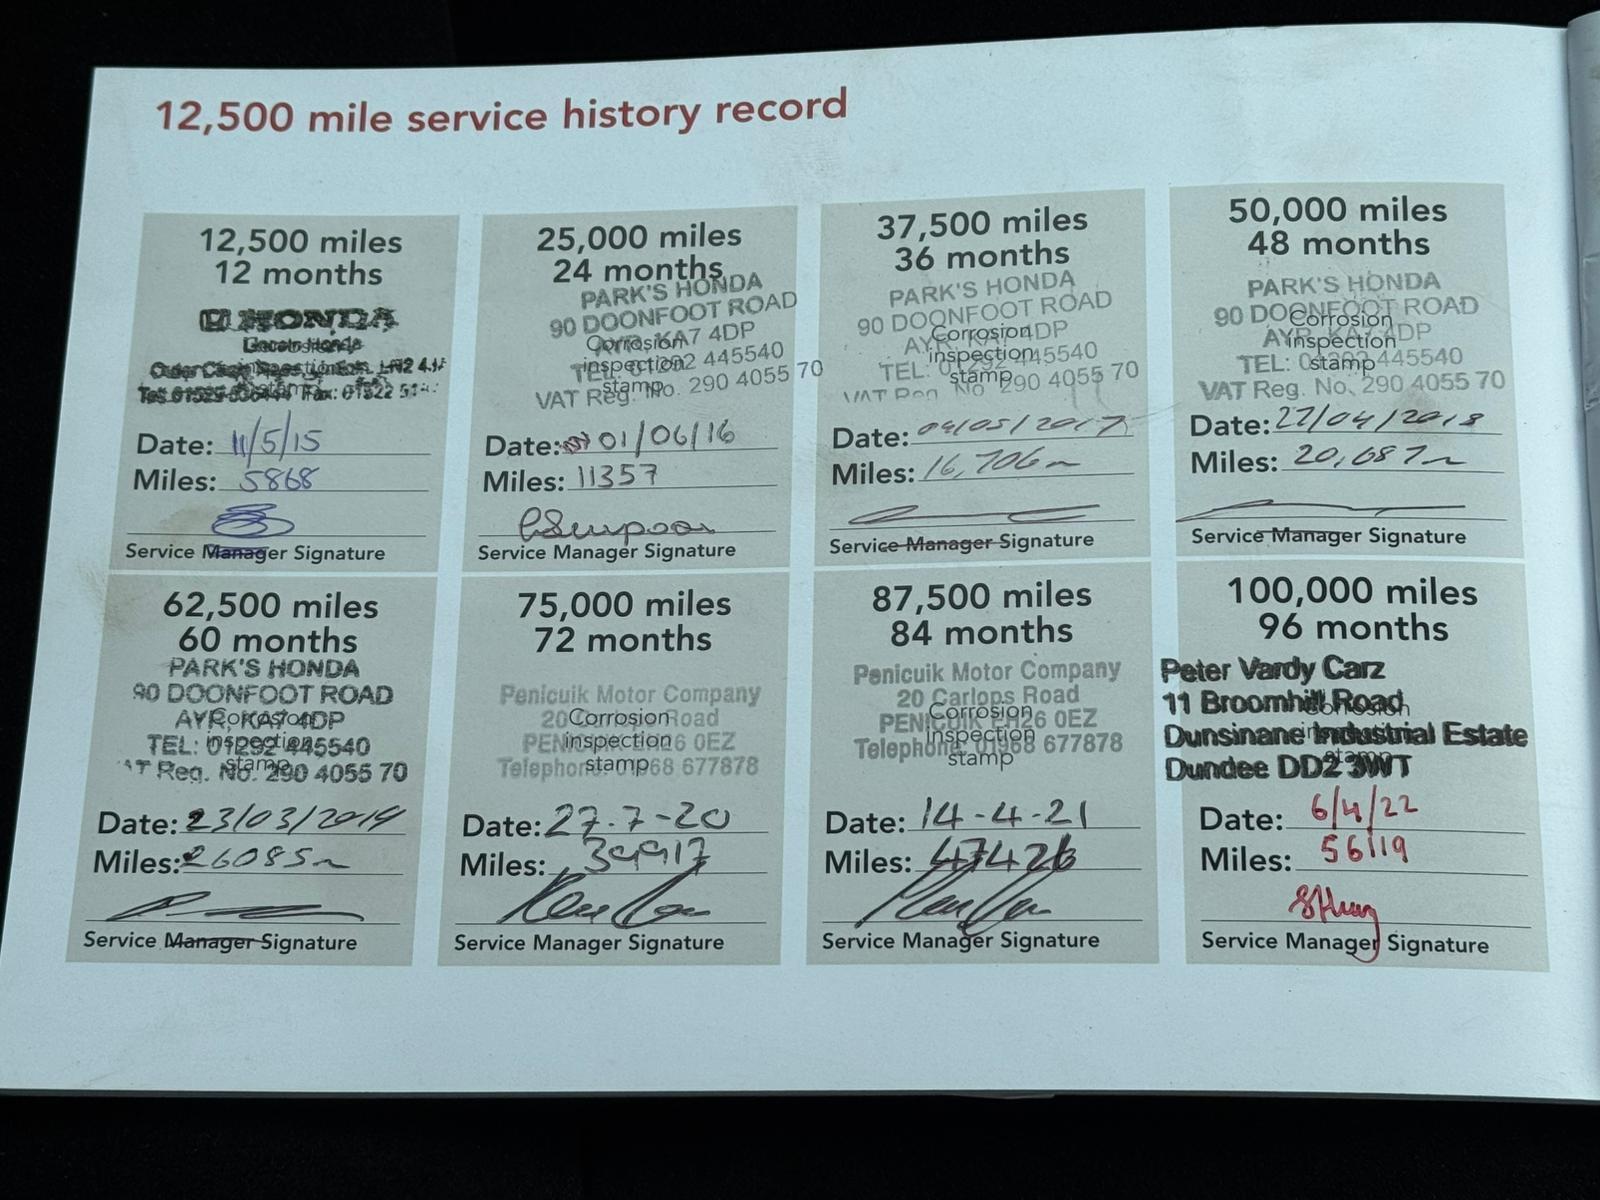 12,500 mile service history record
12,500 miles
12 months
HONDA
Lincoln Honda
Corrosion
inspection
stamp
Date: 11/5/15
Miles: 5868
Service Manager Signature
25,000 miles
24 months
PARK'S HONDA
90 DOONFOOT ROAD
AYR, KA7 4DP
TEL: 01292 445540
VAT Reg. No. 290 4055 70
Corrosion
inspection
stamp
Date: 01/06/16
Miles: 11357
Service Manager Signature
37,500 miles
36 months
PARK'S HONDA
90 DOONFOOT ROAD
AYR, KA7 4DP
TEL: 01292 445540
VAT Reg. No. 290 4055 70
Corrosion
inspection
stamp
Date: 04/05/2017
Miles: 16,706m
Service Manager Signature
50,000 miles
48 months
PARK'S HONDA
90 DOONFOOT ROAD
AYR, KA7 4DP
TEL: 01292 445540
VAT Reg. No. 290 4055 70
Corrosion
inspection
stamp
Date: 27/04/2018
Miles: 20,687m
Service Manager Signature
62,500 miles
60 months
PARK'S HONDA
90 DOONFOOT ROAD
AYR, KA7 4DP
TEL: 01292 445540
VAT Reg. No. 290 4055 70
Corrosion
inspection
stamp
Date: 23/03/2019
Miles: 26085m
Service Manager Signature
75,000 miles
72 months
Penicuik Motor Company
20 Carlops Road
PENICUIK EH26 0EZ
Telephone: 01968 677878
Corrosion
inspection
stamp
Date: 27-7-20
Miles: 39917
Service Manager Signature
87,500 miles
84 months
Penicuik Motor Company
20 Carlops Road
PENICUIK EH26 0EZ
Telephone: 01968 677878
Corrosion
inspection
stamp
Date: 14-4-21
Miles: 47426
Service Manager Signature
100,000 miles
96 months
Peter Vardy Carz
11 Broomhill Road
Dunsinane Industrial Estate
Dundee DD2 3WT
Corrosion
inspection
stamp
Date: 6/4/22
Miles: 56119
Service Manager Signature